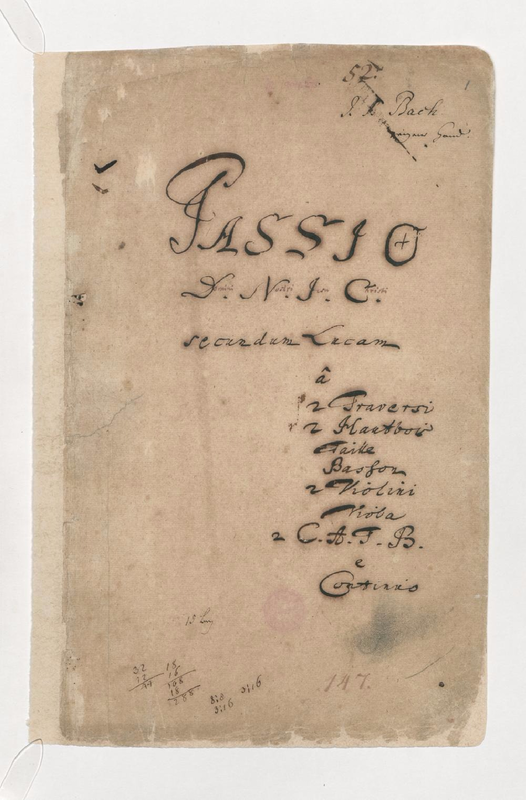 52.
Bach
PASSIO
D. N. J. C.
secundum Lucam
â
2 Traversi
2 Hautbois
Taille
Basson
2 Violini
Viola
2 C. A. T. B.
e
Continuo
15
32 15
12 18
3:8 3:16
3:16
147.